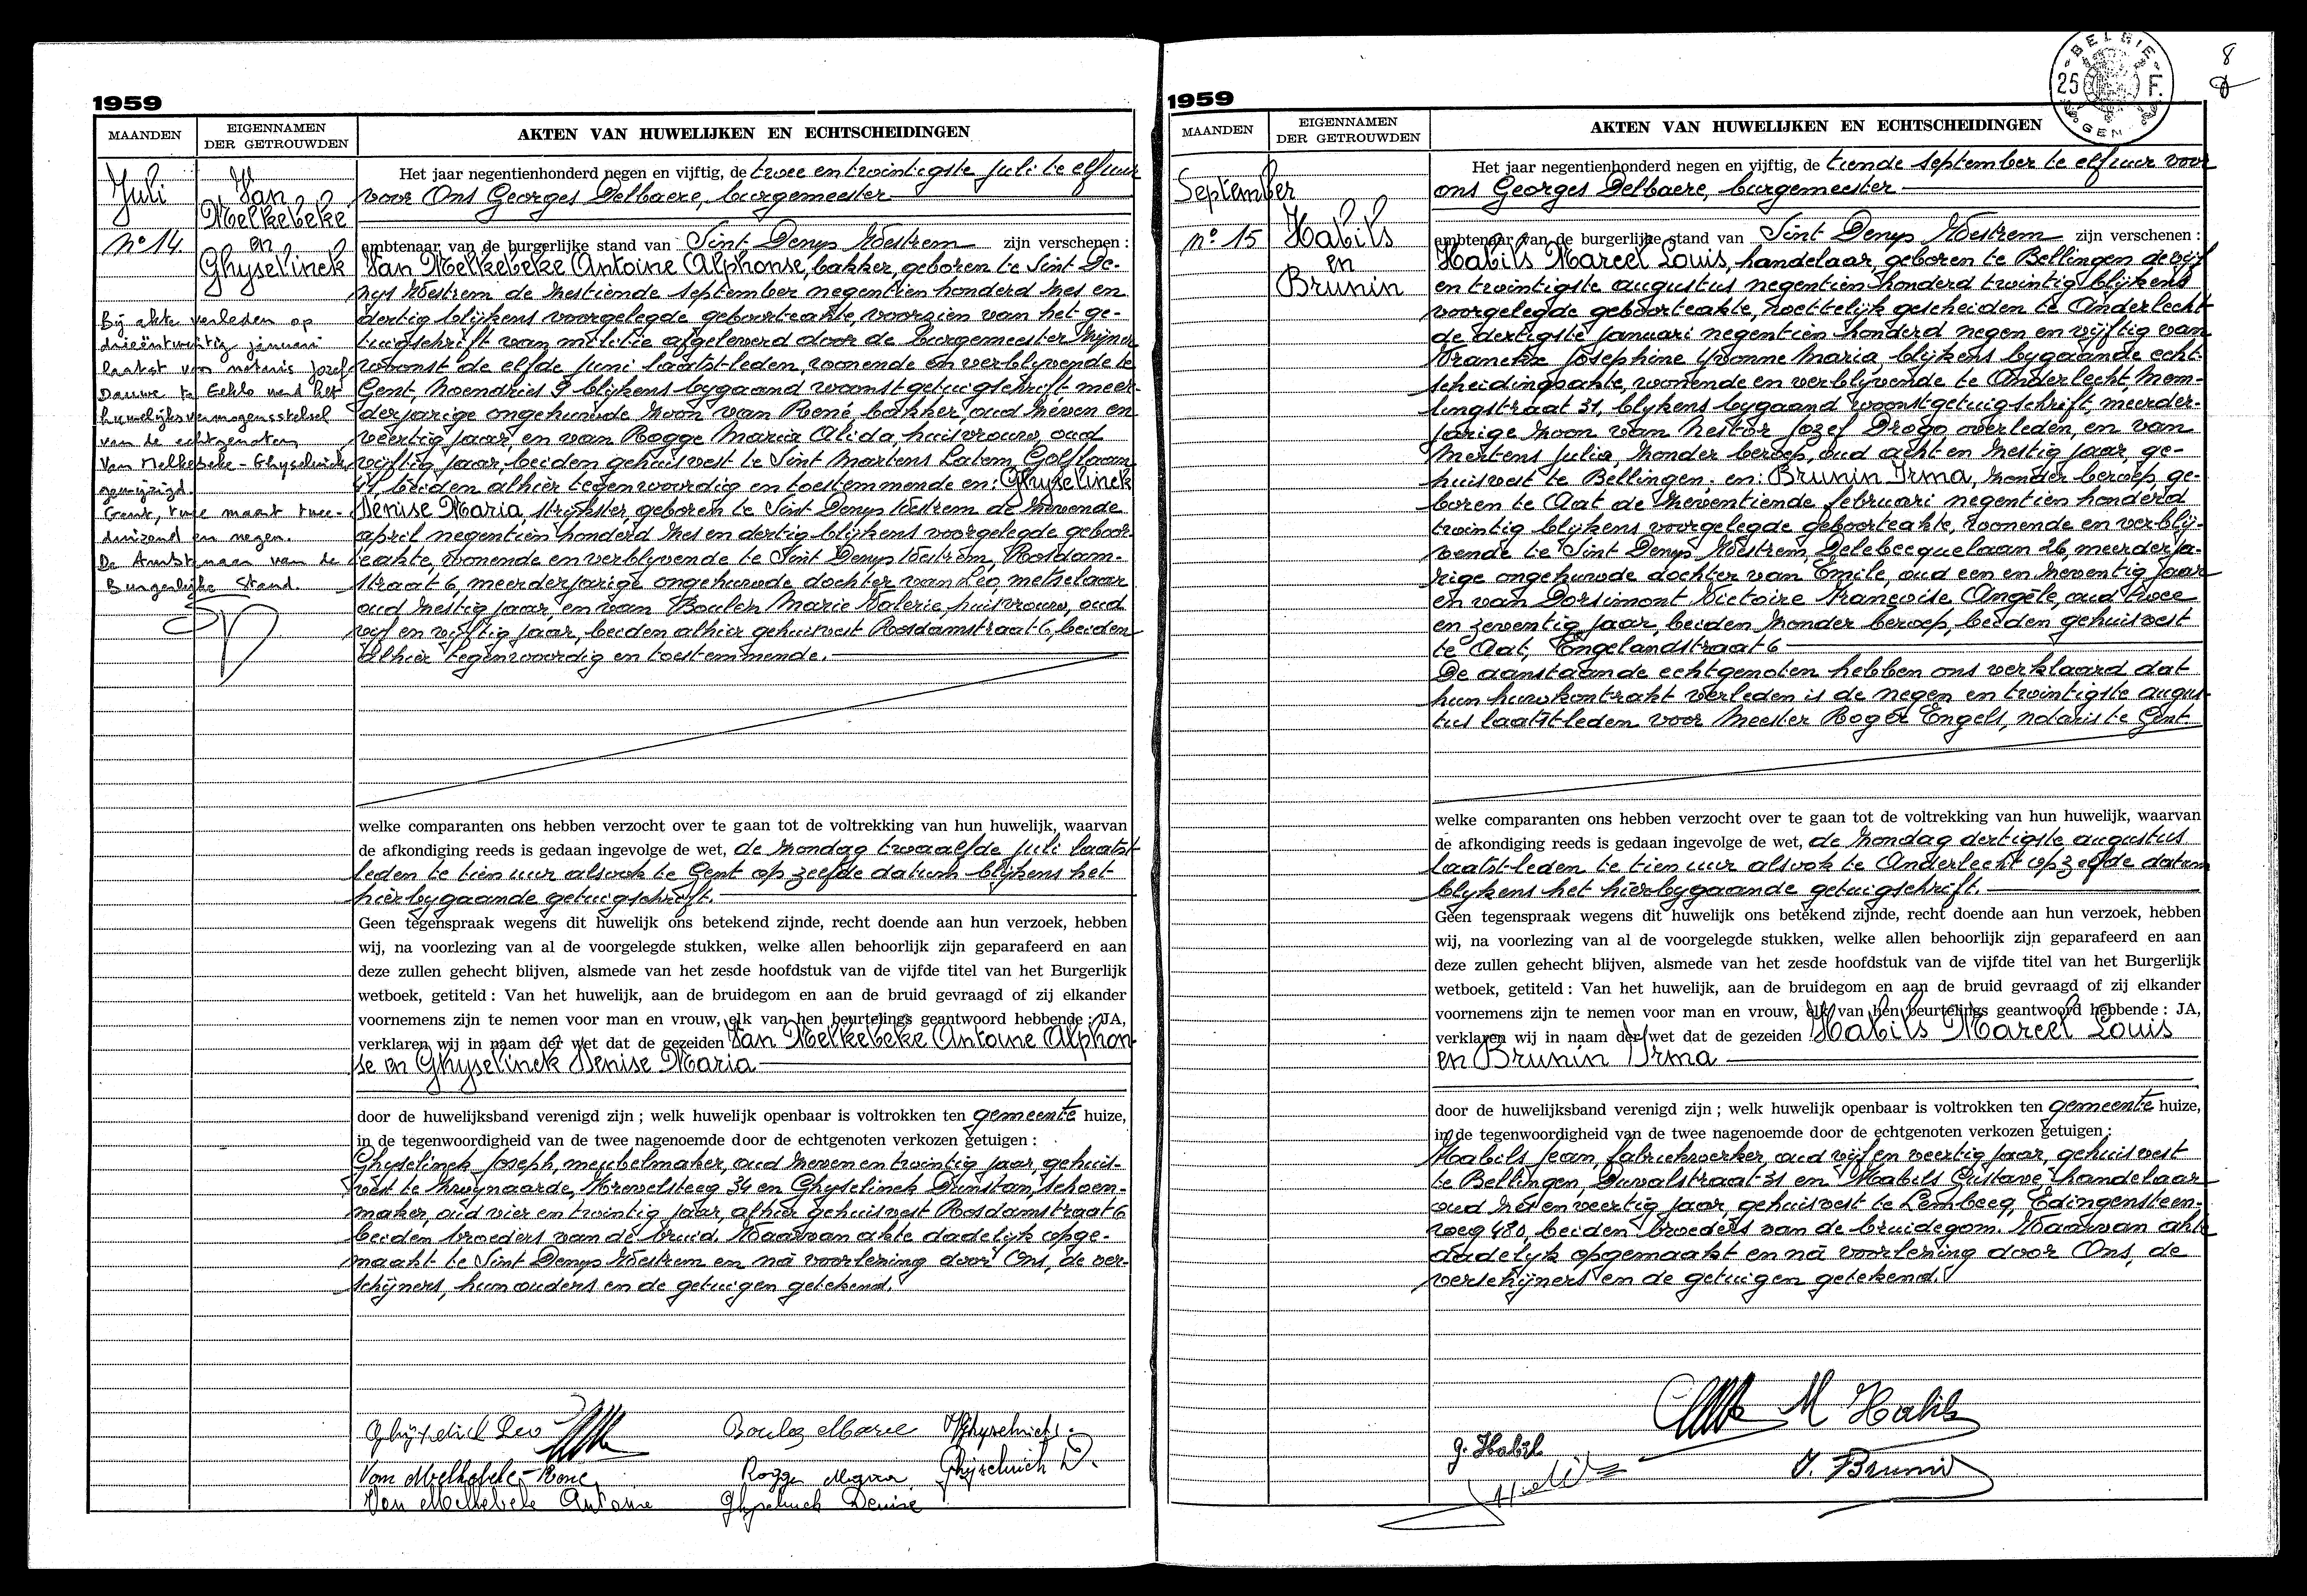 1959
MAANDEN
EIGENNAMEN
DER GETROUWDEN
AKTEN VAN HUWELIJKEN EN ECHTSCHEIDINGEN
Juli
No 14.
Van
Melkebeke
en
Ghyselinck
Bij akte verleden op
drieëntwintig januari
laatst voor notaris Jozef
Dauwe te Eeklo werd het
huwelijksvermogensstelsel
van de echtgenoten
Van Melkebeke - Ghyselinck
gewijzigd.
Gent, twee maart twee-
duizend en negen.
De Ambtenaar van de
Burgerlijke Stand.
Het jaar negentienhonderd negen en vijftig, de twee en twintigste Juli te elf uur
voor Ons Georges Delbaere, burgemeester
ambtenaar van de burgerlijke stand van Sint Denys Westrem zijn verschenen :
Van Melkebeke Antoine Alphonse, bakker, geboren te Sint De-
nys Westrem de zestiende september negentien honderd zes en
dertig blijkens voorgelegde geboorteakte, voorzien van het ge-
tuigschrift van militie afgeleverd door de burgemeester zijner
woonst de elfde Juni laatst-leden, wonende en verblyvende te
Gent, Noendries 9 blijkens bygaand woonstgetuigschrift, meer-
derjarige ongehuwde zoon van René, bakker, oud zeven en
veertig jaar, en van Rogge Maria Alida, huisvrouw, oud
vijftig jaar, beiden gehuisvest te Sint Martens Latem, Golflaan
beiden alhier tegenwoordig en toestemmende en: Ghyselinck
Denise Maria, strijkster, geboren te Sint Denys Westrem de zevende
april negentien honderd zes en dertig blijkens voorgelegde geboor-
teakte, wonende en verblyvende te Sint Denys Westrem, Rosdam-
straat 6, meerderjarige ongehuwde dochter van Leo, metselaar
oud zestig jaar, en van Boulez Marie Valerie, huisvrouw, oud
vijf en vijftig jaar, beiden alhier gehuisvest Rosdamstraat 6, beiden
alhier tegenwoordig en toestemmende.
welke comparanten ons hebben verzocht over te gaan tot de voltrekking van hun huwelijk, waarvan
de afkondiging reeds is gedaan ingevolge de wet, de zondag twaalfde Juli laatst
leden te tien uur alsook te Gent op zelfde datum blijkens het
hierbygaande getuigschrift.
Geen tegenspraak wegens dit huwelijk ons betekend zijnde, recht doende aan hun verzoek, hebben
wij, na voorlezing van al de voorgelegde stukken, welke allen behoorlijk zijn geparafeerd en aan
deze zullen gehecht blijven, alsmede van het zesde hoofdstuk van de vijfde titel van het Burgerlijk
wetboek, getiteld : Van het huwelijk, aan de bruidegom en aan de bruid gevraagd of zij elkander
voornemens zijn te nemen voor man en vrouw, elk van hen beurtelings geantwoord hebbende : JA,
verklaren wij in naam der wet dat de gezeiden Van Melkebeke Antoine Alphon-
se en Ghyselinck Denise Maria
door de huwelijksband verenigd zijn ; welk huwelijk openbaar is voltrokken ten gemeente huize,
in de tegenwoordigheid van de twee nagenoemde door de echtgenoten verkozen getuigen :
Ghyselinck Joseph, meubelmaker, oud zeven en twintig jaar, gehuis-
vest te Zwynaarde, Krevelsteeg 34 en Ghyselinck Dunstan, schoen-
maker, oud vier en twintig jaar, alhier gehuisvest Rosdamstraat 6
beiden broeders van de bruid. Waarvan akte dadelyk opge-
maakt te Sint Denys Westrem en na voorlezing door Ons, de ver-
schijners, hun ouders en de getuigen getekend.
Ghyselinck Leo
Boulez Marie
Ghyselinck
Van Melkebeke René
Rogge Maria
Ghyselinck D.
Van Melkebeke Antoine
Ghyselinck Denise
8
BELGIE
25 F.
GEN
1959
MAANDEN
EIGENNAMEN
DER GETROUWDEN
AKTEN VAN HUWELIJKEN EN ECHTSCHEIDINGEN
September
No 15
Habils
en
Brunin
Het jaar negentienhonderd negen en vijftig, de tiende september te elf uur voor
ons Georges Delbaere, burgemeester
ambtenaar van de burgerlijke stand van Sint Denys Westrem zijn verschenen :
Habils Marcel Louis, handelaar, geboren te Bellingen de vijf
en twintigste augustus negentien honderd twintig blijkens
voorgelegde geboorteakte, wettelijk gescheiden te Anderlecht
de dertigste Januari negentien honderd negen en vijftig van
Vranckx Josephine Yvonne Maria, blijkens bygaande echt-
scheidingsakte, wonende en verblijvende te Anderlecht, Mom-
lingstraat 31, blykens bygaand woonstgetuigschrift, meerder-
jarige zoon van Nestor Jozef Drogo overleden, en van
Mertens Julia, zonder beroep, oud acht en zestig jaar, ge-
huisvest te Bellingen. en: Brunin Irma, zonder beroep ge-
boren te Aat de zeventiende februari negentien honderd
twintig blijkens voorgelegde geboorteakte, wonende en verblij-
vende te Sint Denys Westrem, Delebecquelaan 26, meerderja-
rige ongehuwde dochter van Emile, oud een en zeventig jaar
en van Dorsimont Victoire Françoise Angèle, oud twee
en zeventig jaar, beiden zonder beroep, beiden gehuisvest
te Aat, Engelandstraat 6
De aanstaande echtgenoten hebben ons verklaard dat
hun huwkontrakt verleden is de negen en twintigste augus-
tus laatst-leden voor Meester Roger Engels, notaris te Gent.
welke comparanten ons hebben verzocht over te gaan tot de voltrekking van hun huwelijk, waarvan
de afkondiging reeds is gedaan ingevolge de wet, de zondag dertigste augustus
laatst-leden te tien uur alsook te Anderlecht op zelfde datum
blykens het hierbygaande getuigschrift.
Geen tegenspraak wegens dit huwelijk ons betekend zijnde, recht doende aan hun verzoek, hebben
wij, na voorlezing van al de voorgelegde stukken, welke allen behoorlijk zijn geparafeerd en aan
deze zullen gehecht blijven, alsmede van het zesde hoofdstuk van de vijfde titel van het Burgerlijk
wetboek, getiteld : Van het huwelijk, aan de bruidegom en aan de bruid gevraagd of zij elkander
voornemens zijn te nemen voor man en vrouw, elk van hen beurtelings geantwoord hebbende : JA,
verklaren wij in naam der wet dat de gezeiden Habils Marcel Louis
en Brunin Irma
door de huwelijksband verenigd zijn ; welk huwelijk openbaar is voltrokken ten gemeente huize,
in de tegenwoordigheid van de twee nagenoemde door de echtgenoten verkozen getuigen :
Habils Jean, fabriekwerker, oud vijf en veertig jaar, gehuisvest
te Bellingen, Duvalstraat 31 en Habils Gustave, handelaar
oud zes en veertig jaar, gehuisvest te Lembeeg, Edingensteen-
weg 480, beiden broeders van de bruidegom. Waarvan akte
dadelyk opgemaakt en na voorlezing door Ons, de
verschijners en de getuigen getekend.
M Habils
G. Habils
I. Brunin